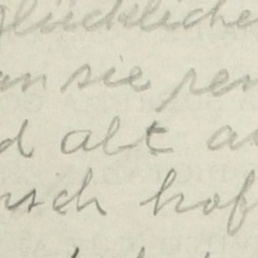 glückliche
an sie per
d alt a
nsch hof